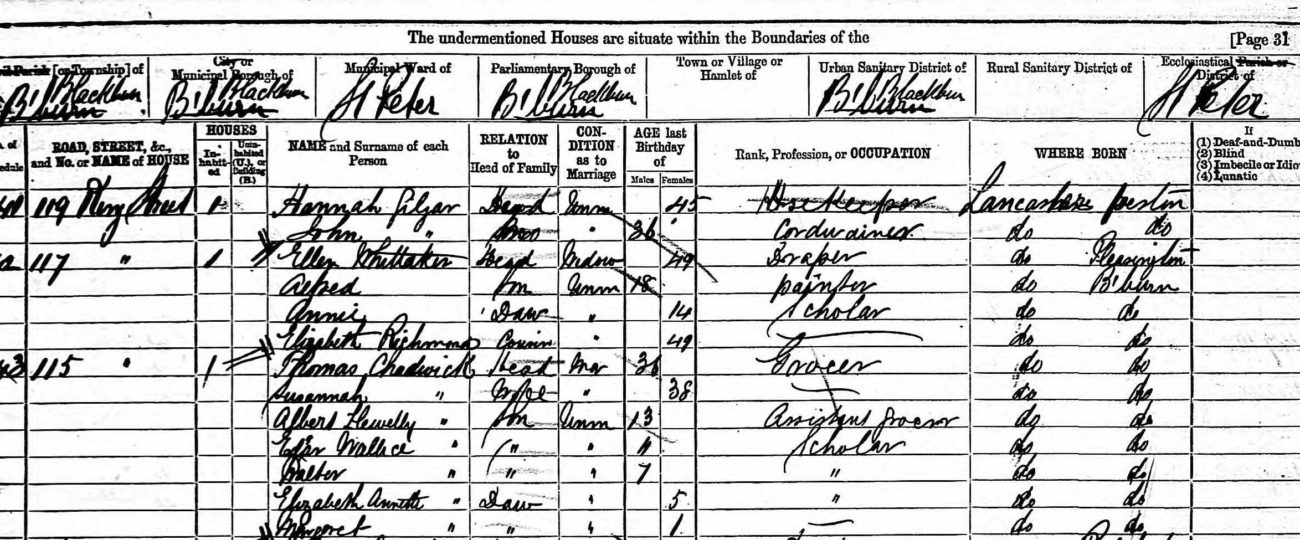 The undermentioned Houses are situate within the Boundaries of the [Page 31
[or Township] of City or Municipal Borough of Municipal Ward of Parliamentary Borough of Town or Village or Hamlet of Urban Sanitary District of Rural Sanitary District of Ecclesiastical Parish or District of
B'burn Blackburn B'burn Blackburn St Peter B'burn Blackburn B'burn Blackburn St Peter
ROAD, STREET, &c., and No. or NAME of HOUSE HOUSES In-habit-ed Unin-habited (U.), or Building (B.) NAME and Surname of each Person RELATION to Head of Family CON-DITION as to Marriage AGE last Birthday of Males Females Rank, Profession, or OCCUPATION WHERE BORN If (1) Deaf-and-Dumb (2) Blind (3) Imbecile or Idiot (4) Lunatic
119 King Street 1 Hannah Gilgar Head Unm 45 Housekeeper Lancashire Preston
John " Bro " 36 Cordwainer do do
117 " 1 Ellen Whittaker Head Widow 49 Draper do Pleasington
Alfred Son Unm 18 painter do B'burn
Annie Daur " 14 Scholar do do
Elizabeth Richmond Cousin " 49 do do
115 " 1 Thomas Chadwick Head Mar 36 Grocer do do
Susannah " Wife " 38 do do
Albert Llewelly " Son Unm 13 Assistant grocer do do
Edgar Wallace " " " 11 Scholar do do
Walter " " " 7 " do do
Elizabeth Annette " Daur " 5 " do do
Margaret " " " 1 do do